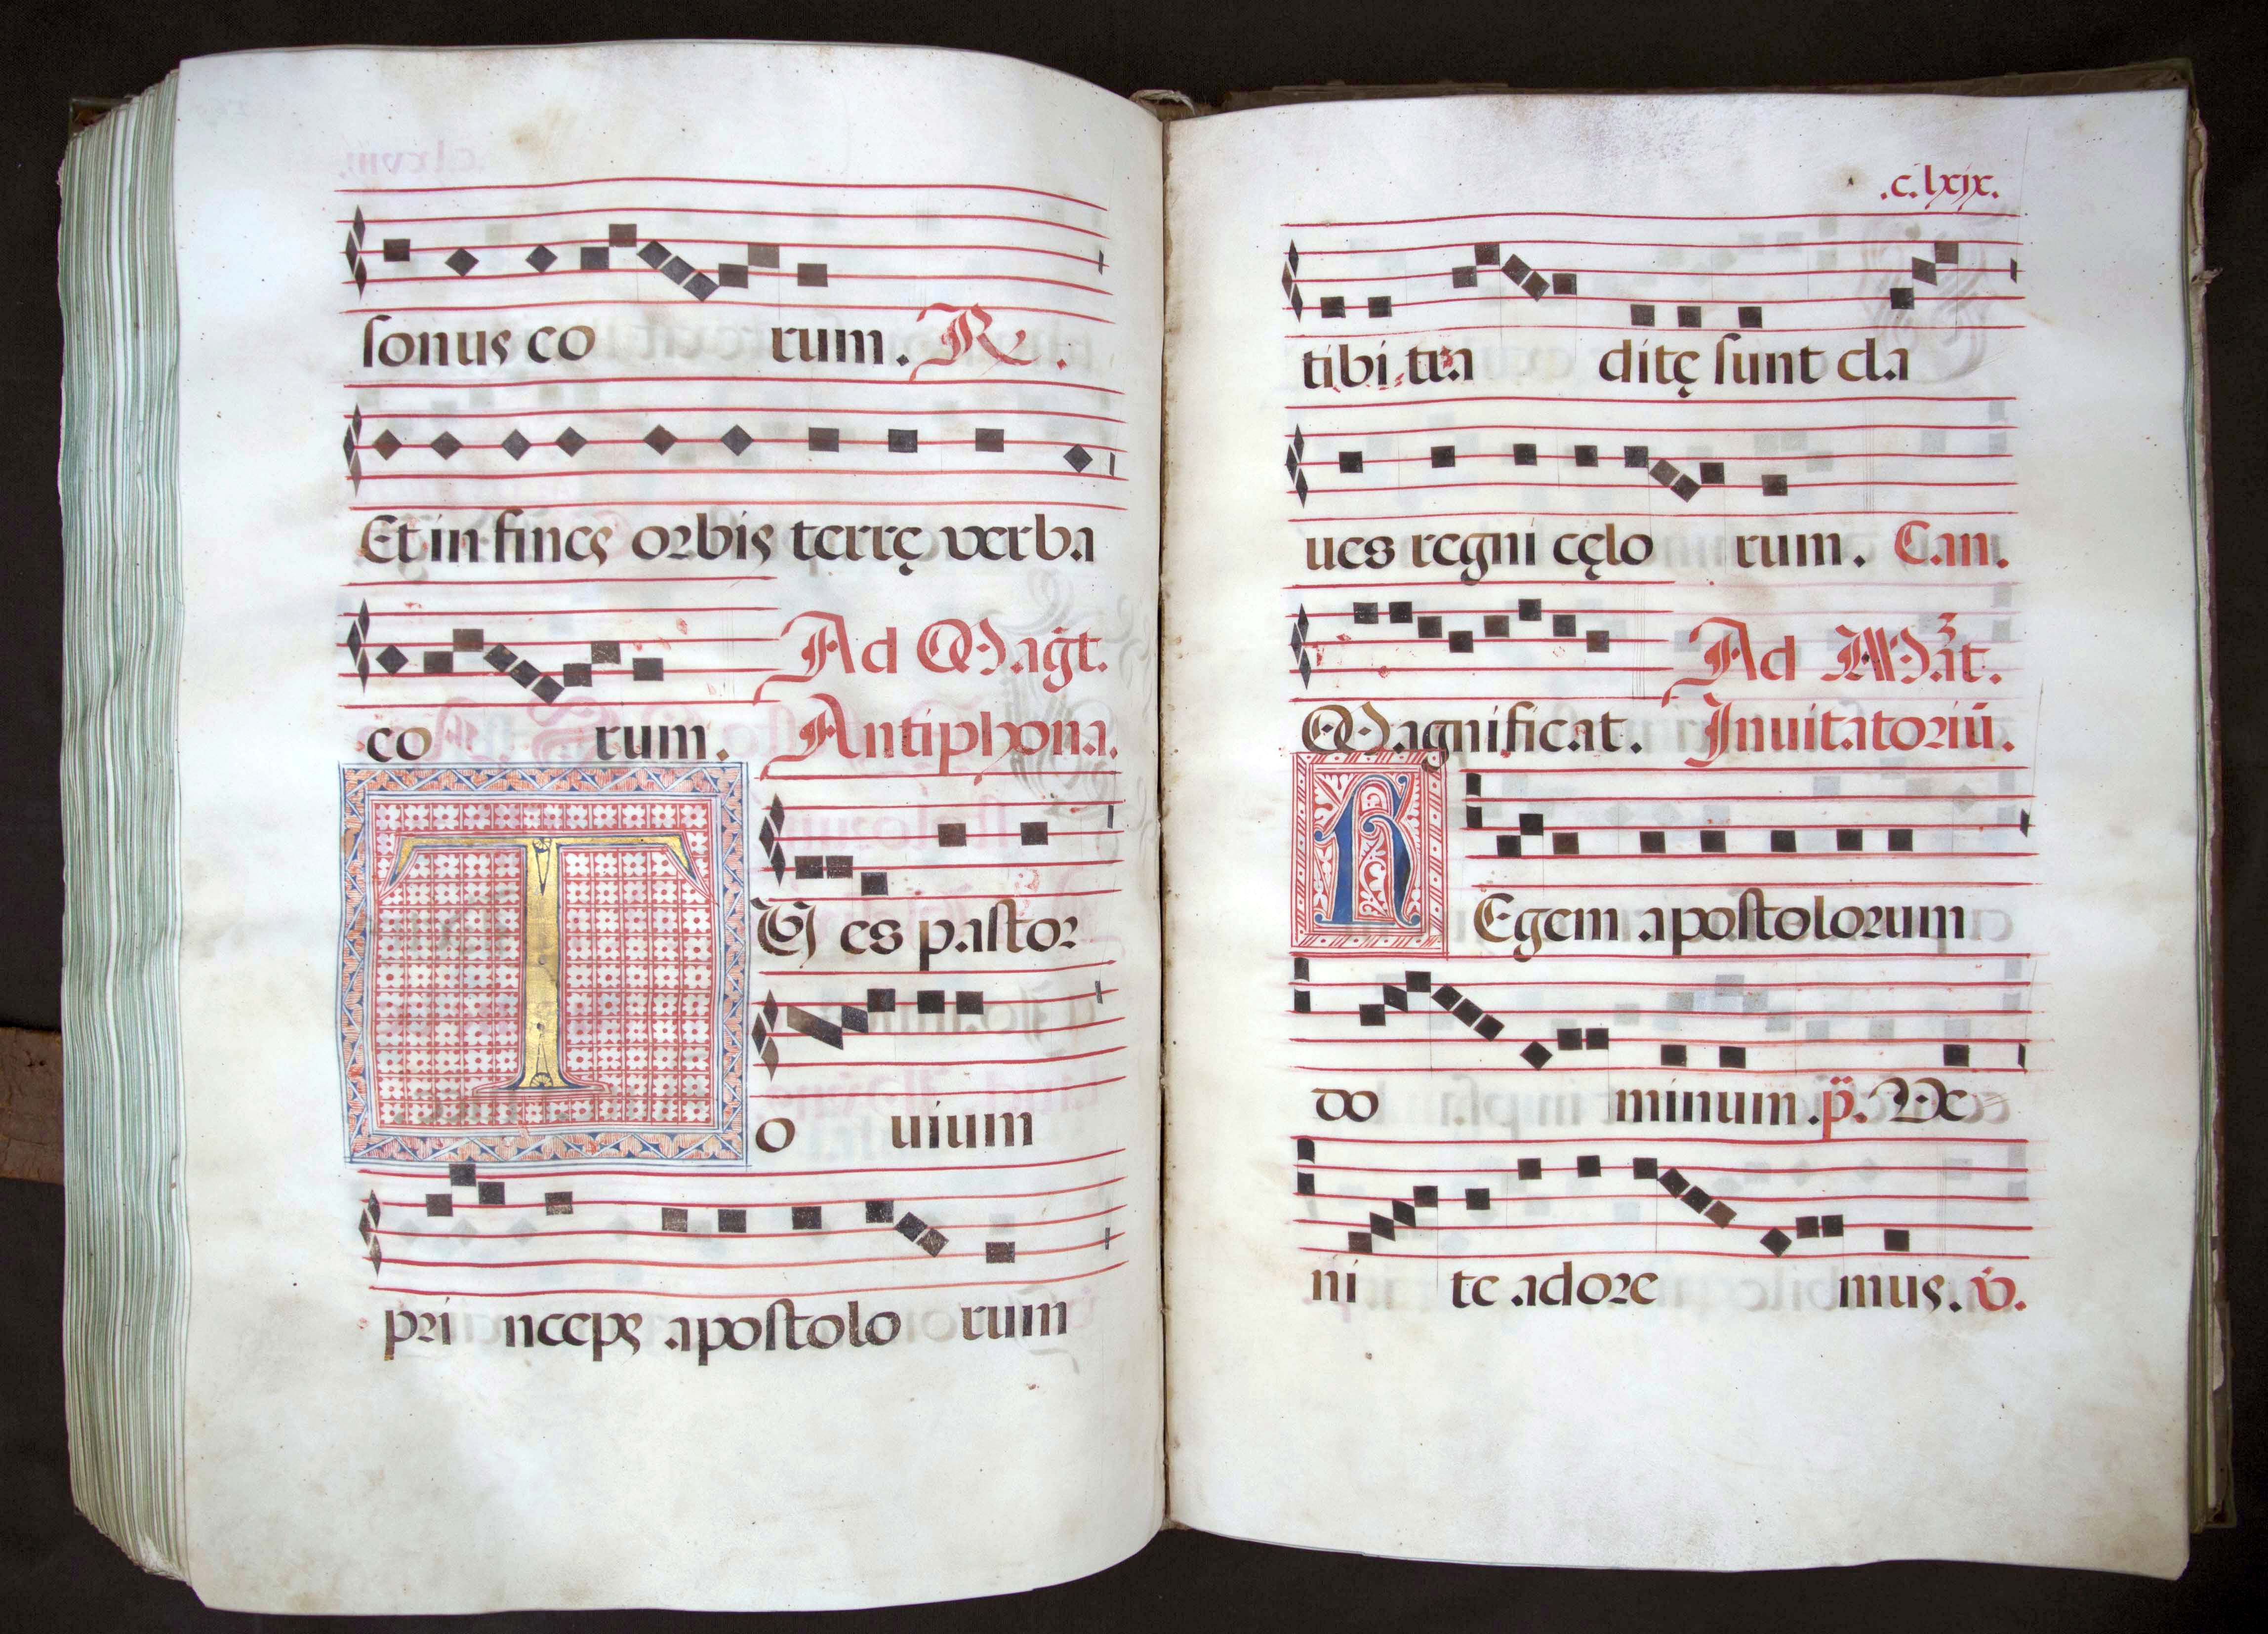 sonus co rum. Re.
Et in fines orbis terrę verba
Ad Mag̃t.
co rum. Antiphona.
TU es pastor
o uium
pri nceps apostolo rum
.c.lxix.
tibi tra ditę sunt cla
ues regni cęlo rum. Can.
Ad Mat̃.
Magnificat. Inuitatoriũ.
REgem apostolorum
do minum. p̃. Ve
ni te adore mus. v̇.